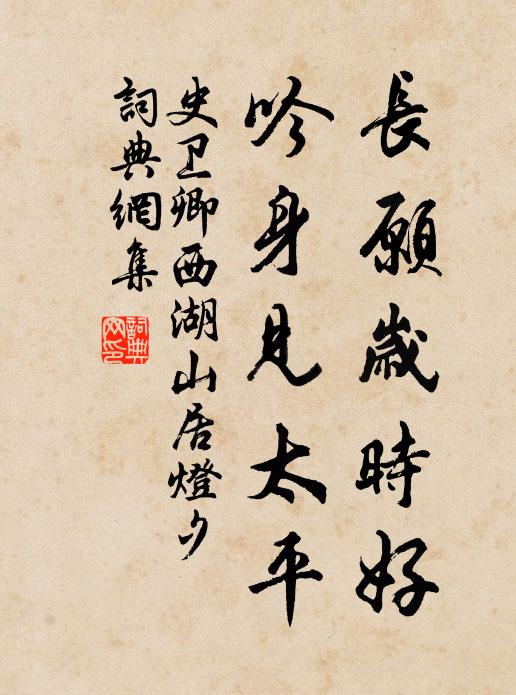 長願歲時好
吟身見太平
史卫卿西湖山居燈夕
詞典網集
詞典网印